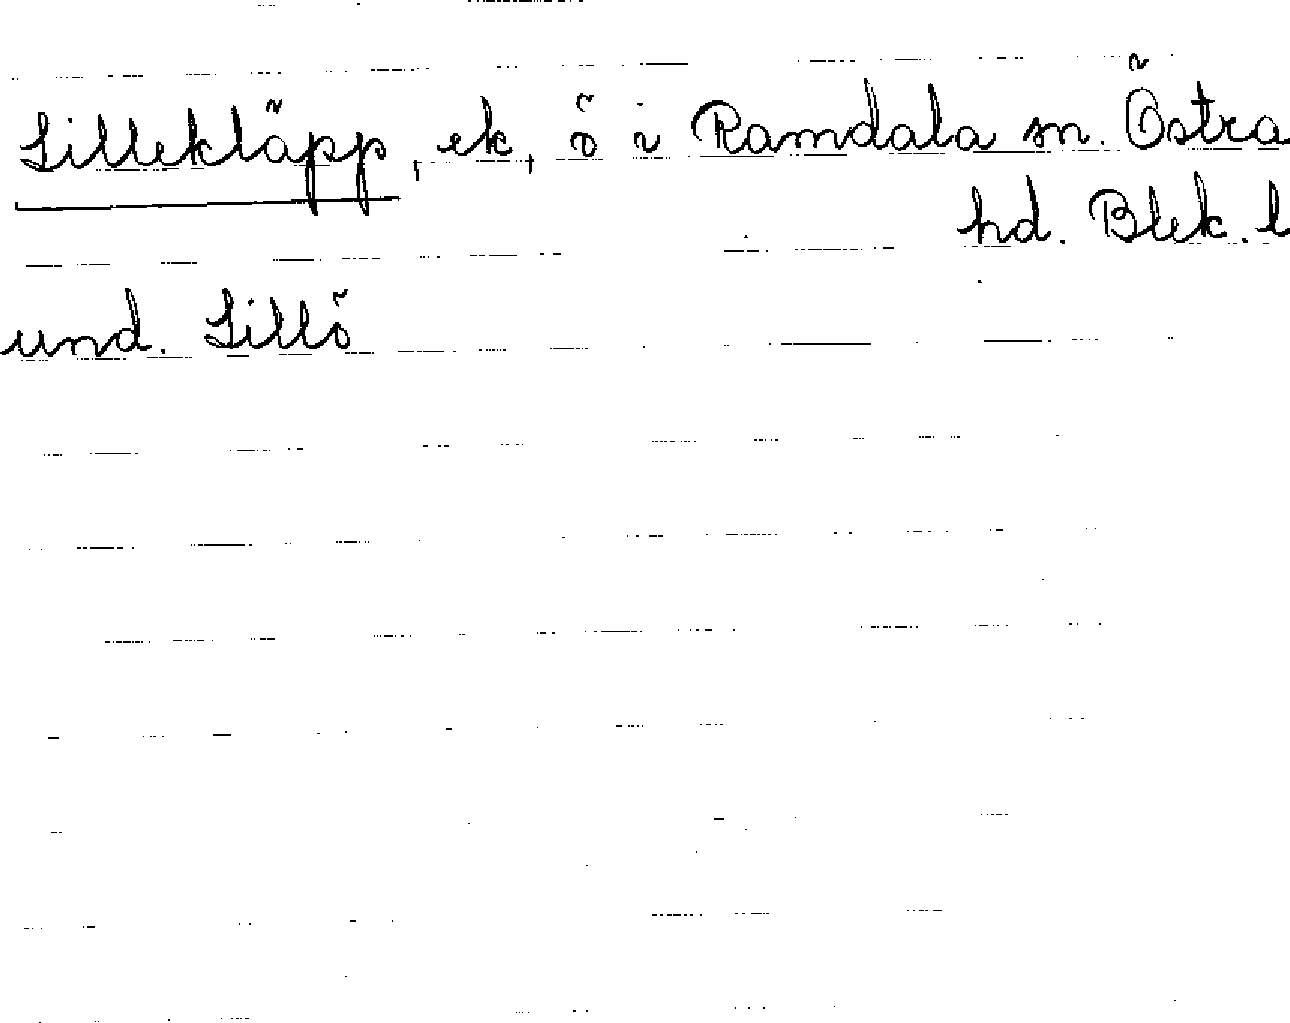 Lilleкläpp, ek, ö i Ramdala sn. Östra
hd. Blek. l
und. Lillö